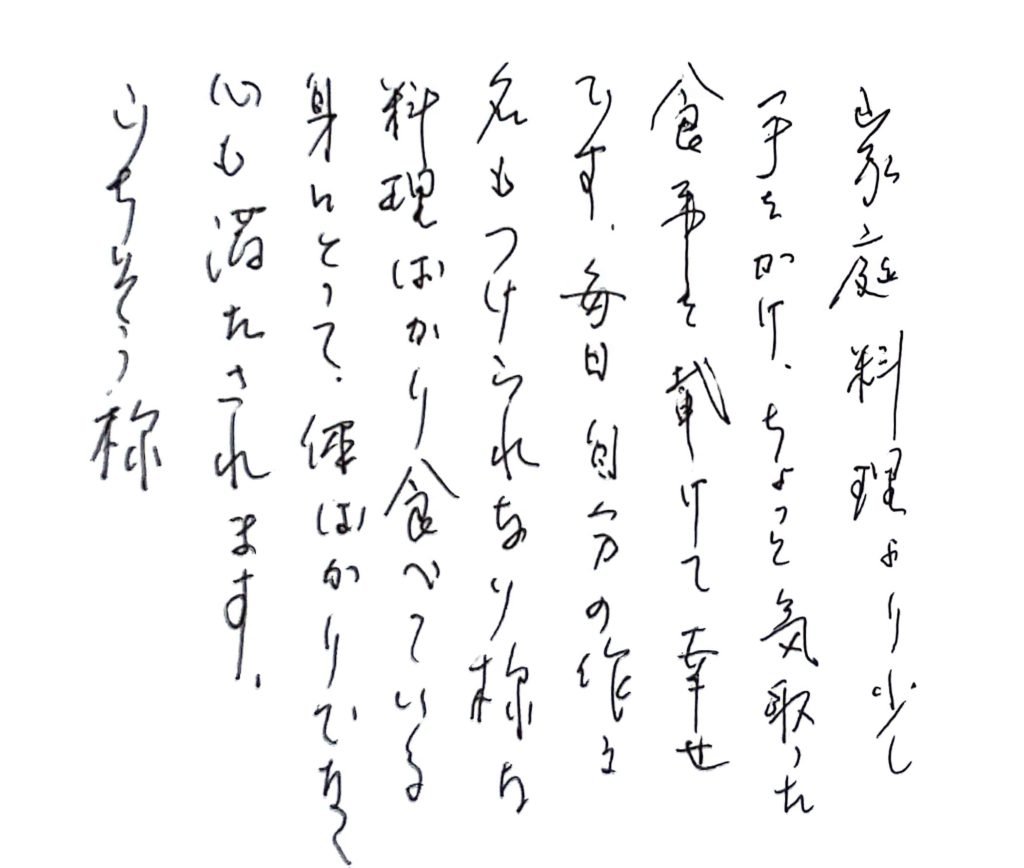 家庭料理より少し
手をかけ、ちょっと気取った
食事を戴けて幸せ
です。毎日自分の作る
名もつけられない様な
料理ばかり食べている
身にとって、体ばかりでなく
心も満たされます。
ごちそう様